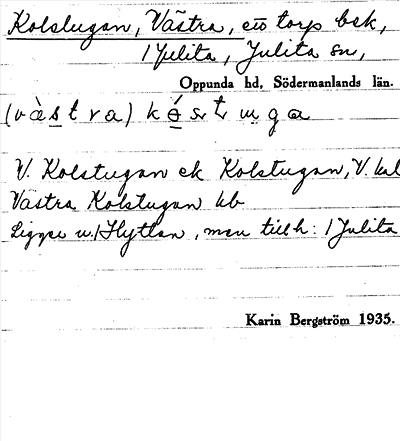 Kolstugan, Västra, ett torp bsk,
1 Julita, Julita sn,
Oppunda hd, Södermanlands län.
(västra)
V. Kolstugan ek Kolstugan, V. kal
Västra Kolstugan kb
Ligger u. 1 Hyttan, men till h: 1 Julita
Karin Bergström 1935.